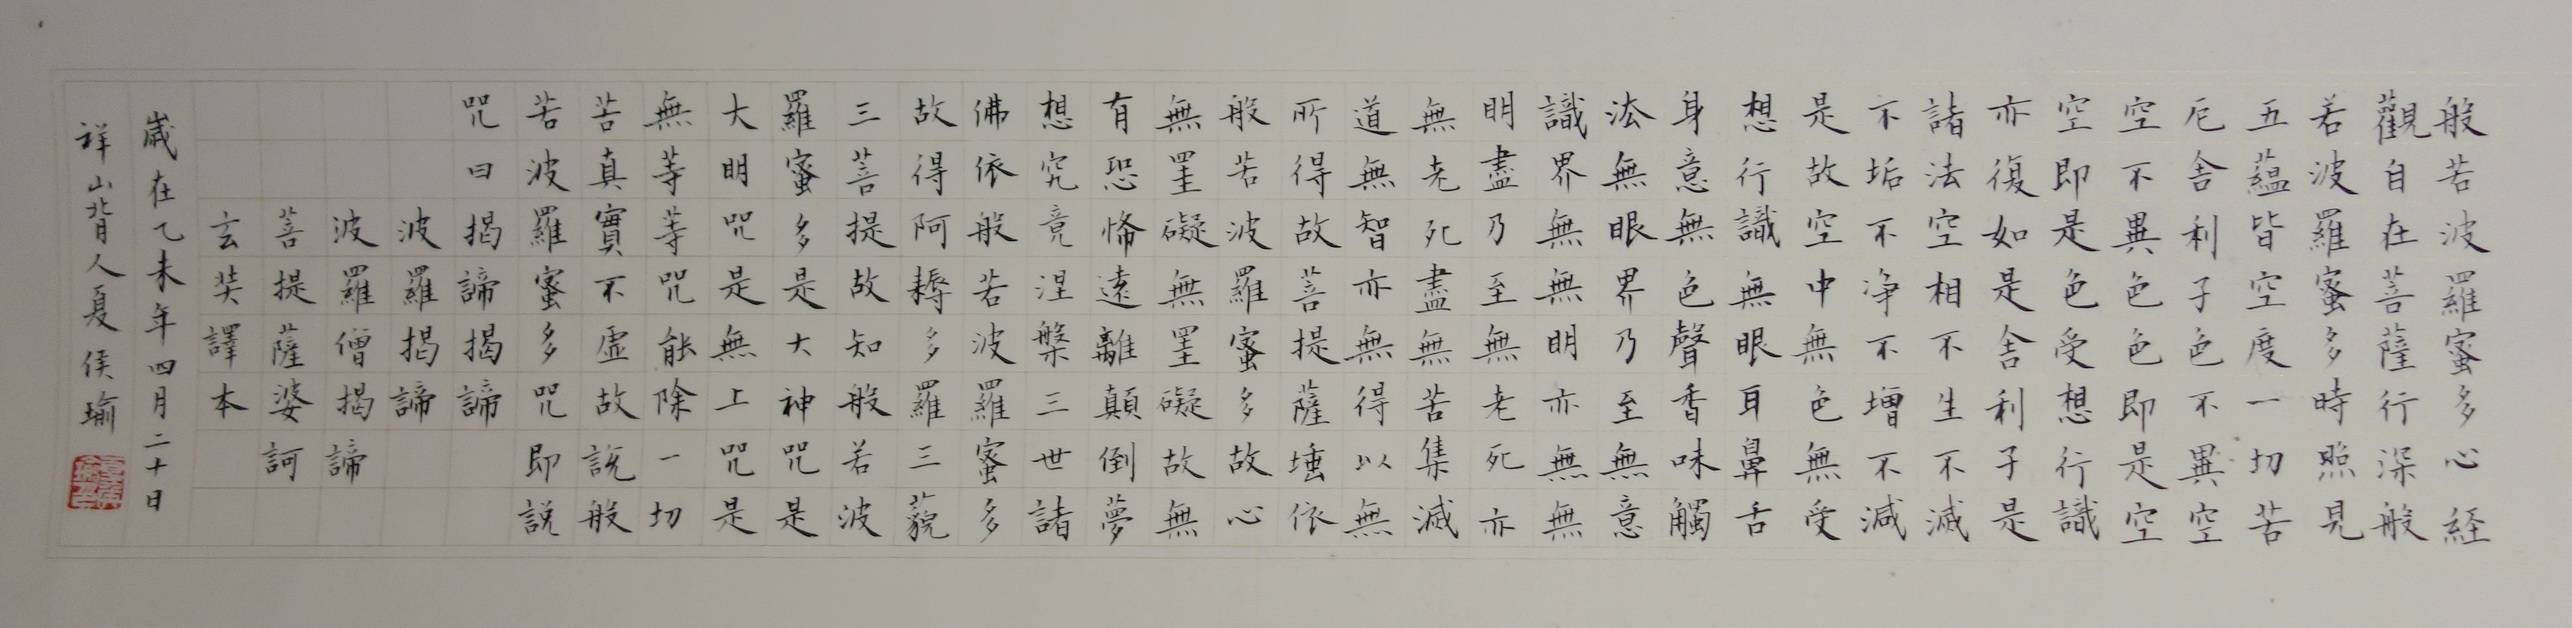 般若波羅蜜多心経
觀自在菩薩行深般
若波羅蜜多時照見
五蘊皆空度一切苦
厄舍利子色不異空
空不異色色即是空
空即是色受想行識
亦復如是舍利子是
諸法空相不生不滅
不垢不净不增不減
是故空中無色無受
想行識無眼耳鼻舌
身意無色聲香味觸
法無眼界乃至無意
識界無無明亦無無
明盡乃至無老死亦
無老死盡無苦集滅
道無智亦無得以無
所得故菩提薩埵依
般若波羅蜜多故心
無罣礙無罣礙故無
有恐怖遠離顛倒夢
想究竟涅槃三世諸
佛依般若波羅蜜多
故得阿耨多羅三藐
三菩提故知般若波
羅蜜多是大神咒是
大明咒是無上咒是
無等等咒能除一切
苦真實不虛故說般
若波羅蜜多咒即說
咒曰揭諦揭諦
波羅揭諦
波羅僧揭諦
菩提薩婆訶
玄奘譯本
歲在乙未年四月二十日
祥山背人夏侯瑜